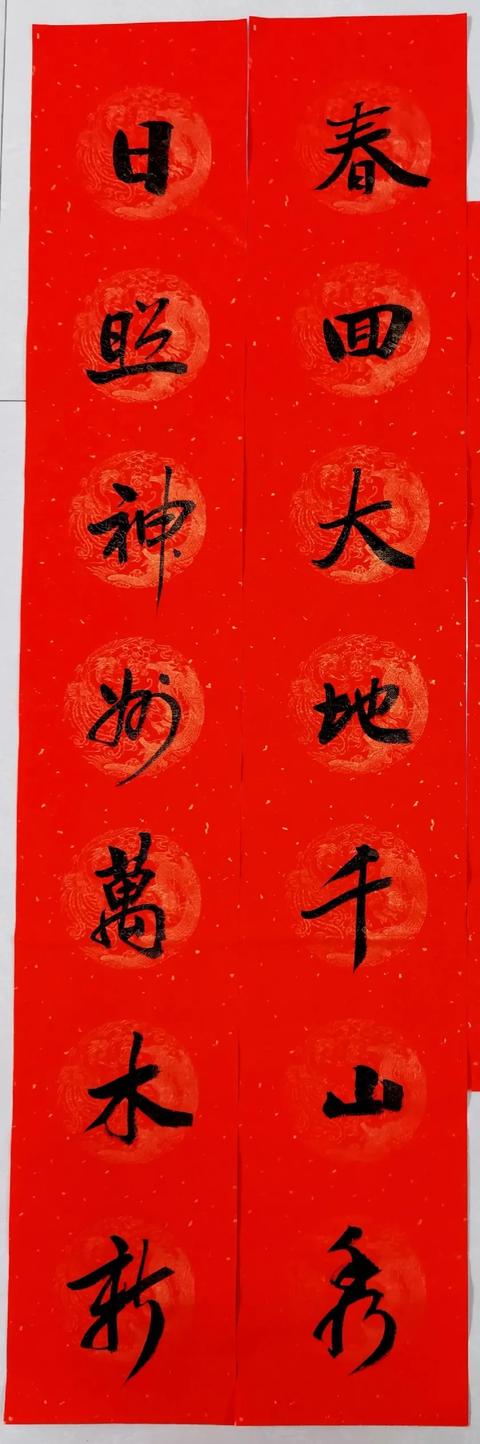 春回大地千山秀
日照神州萬木新